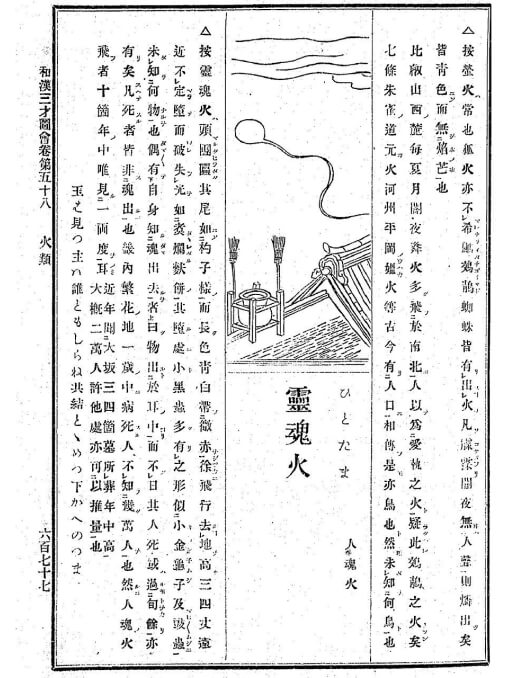 △按螢火常也狐火亦不希鼬鵁鶄蜘蛛皆有出火凡霡霂闇夜無人聲則燐出矣
皆青色而無焰芒也
比叡山西麓毎夏月闇夜燐火多飛於南北人以爲愛執之火疑此鵁鶄之火矣
七條朱雀道元火河州平岡媼火等古今有人口相傳是亦鳥也然未知何鳥也
ひとたま
靈魂火
人魂火
△按靈魂火頭團匾其尾如杓子樣而長色青白帶微赤徐飛行去地高三四丈遠
近不定墮而破失光如煮爛麩餅其墮處小黑蟲多有之形似小金龜子及鼓蟲
未知何物也偶有自身知魂出去者曰物出於耳中而不日其人死或過旬餘亦
有矣凡死者皆非魂出也畿內繁花地一歲中病死人不知幾萬人也然人魂火
飛者十箇年中唯見一兩度耳
近年聞大坂三四箇墓所葬年中高
大概二萬人許他處亦可以推量也
玉は見つ主は誰ともしらね共結とゝめつ下かへのつま
和漢三才圖會卷第五十八 火類 六百七十七